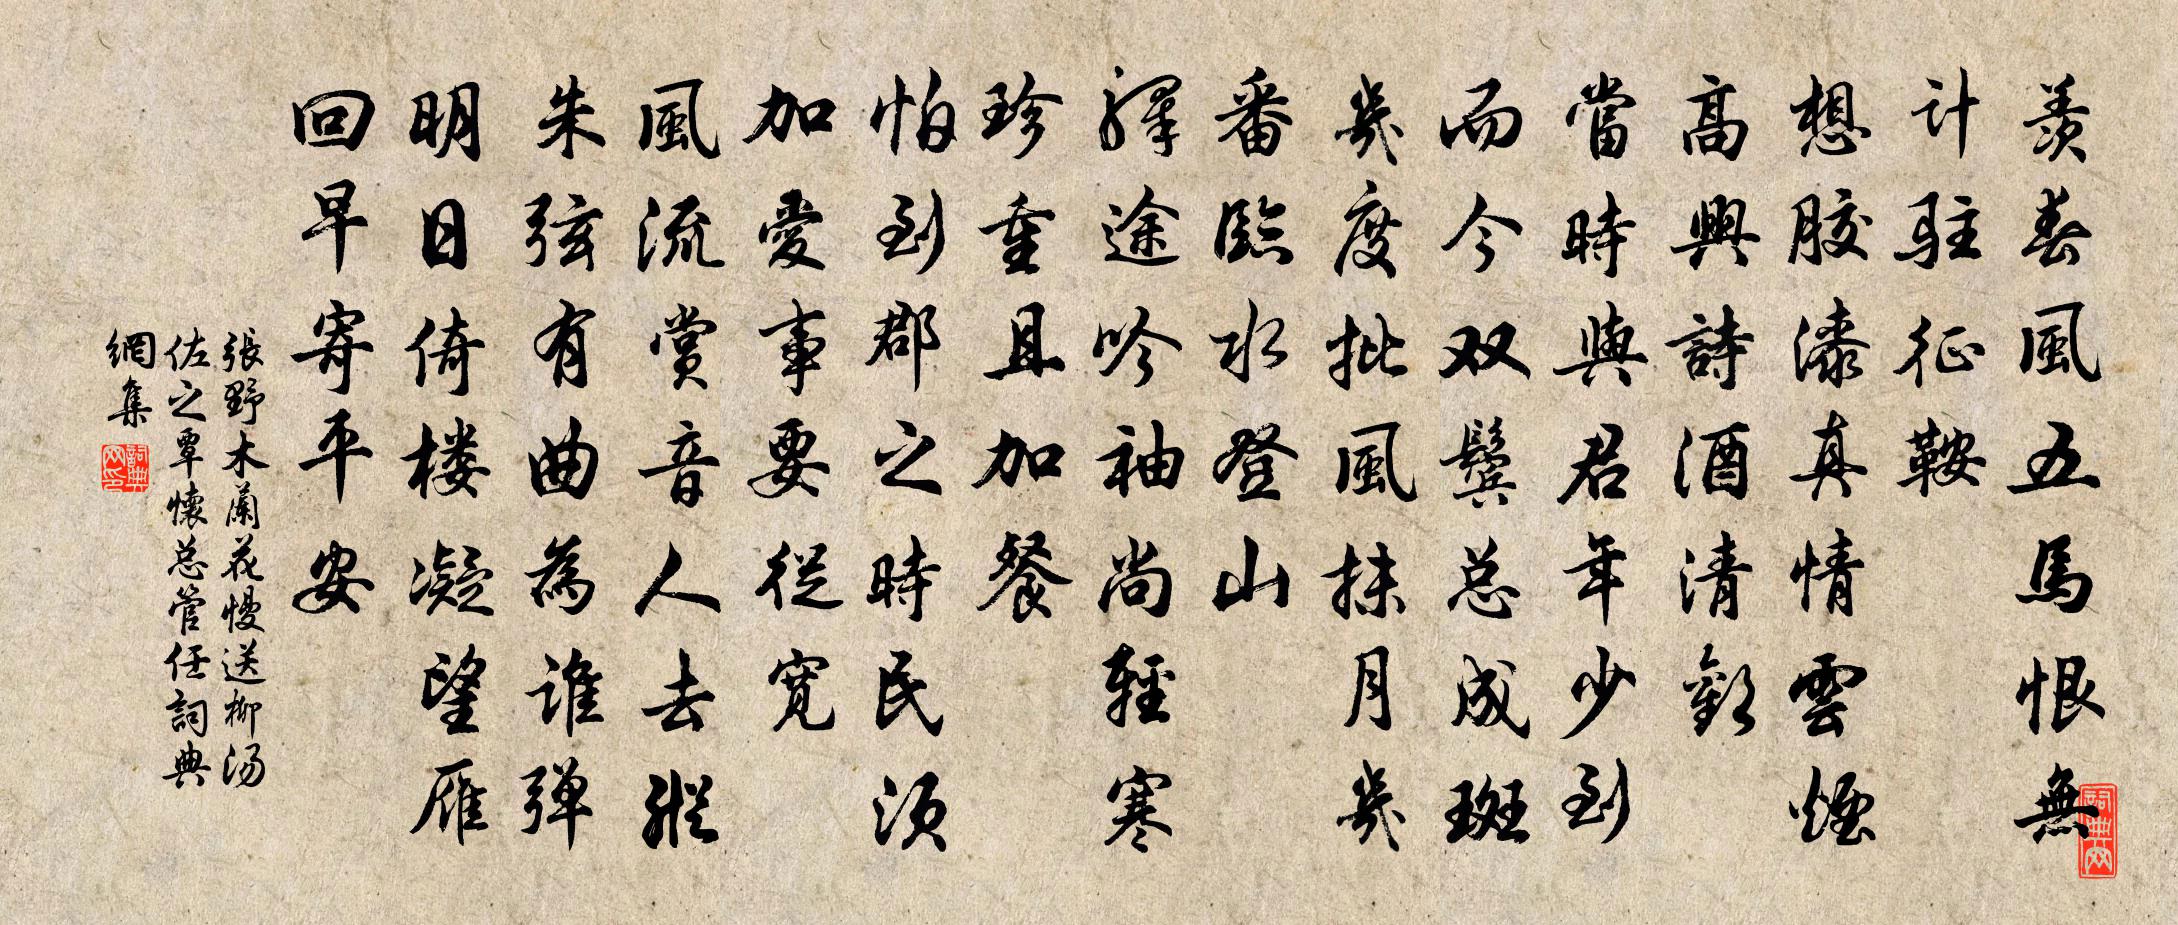 羨春風五馬恨無
计駐征鞍
想膠漆真情雲煙
高興詩酒清歡
當時與君年少到
而今双鬓总成斑
幾度批風抹月幾
番臨水登山
驛途吟袖尚輕寒
珍重且加餐
怕到郡之時民須
加愛事要從寬
風流賞音人去縱
朱弦有曲為誰弹
明日倚楼凝望雁
回早寄平安
張野木蘭花慢送柳汤
佐之覃懷总管任詞典
網集
詞典网印
詞典网